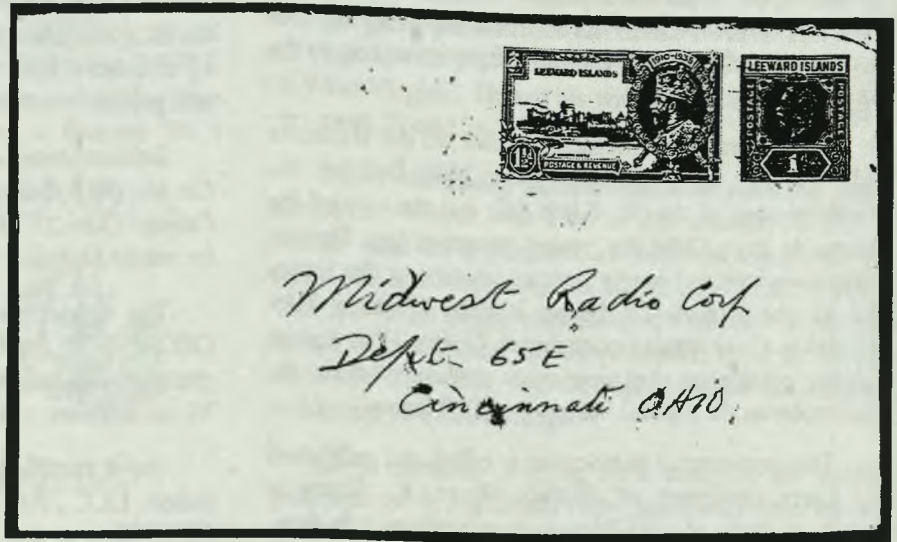 LEEWARD ISLANDS
1910-1935
POSTAGE & REVENUE
LEEWARD ISLANDS
POSTAGE
POSTAGE
1
Midwest Radio Corp
Dept. 65E
Cincinnati OHIO